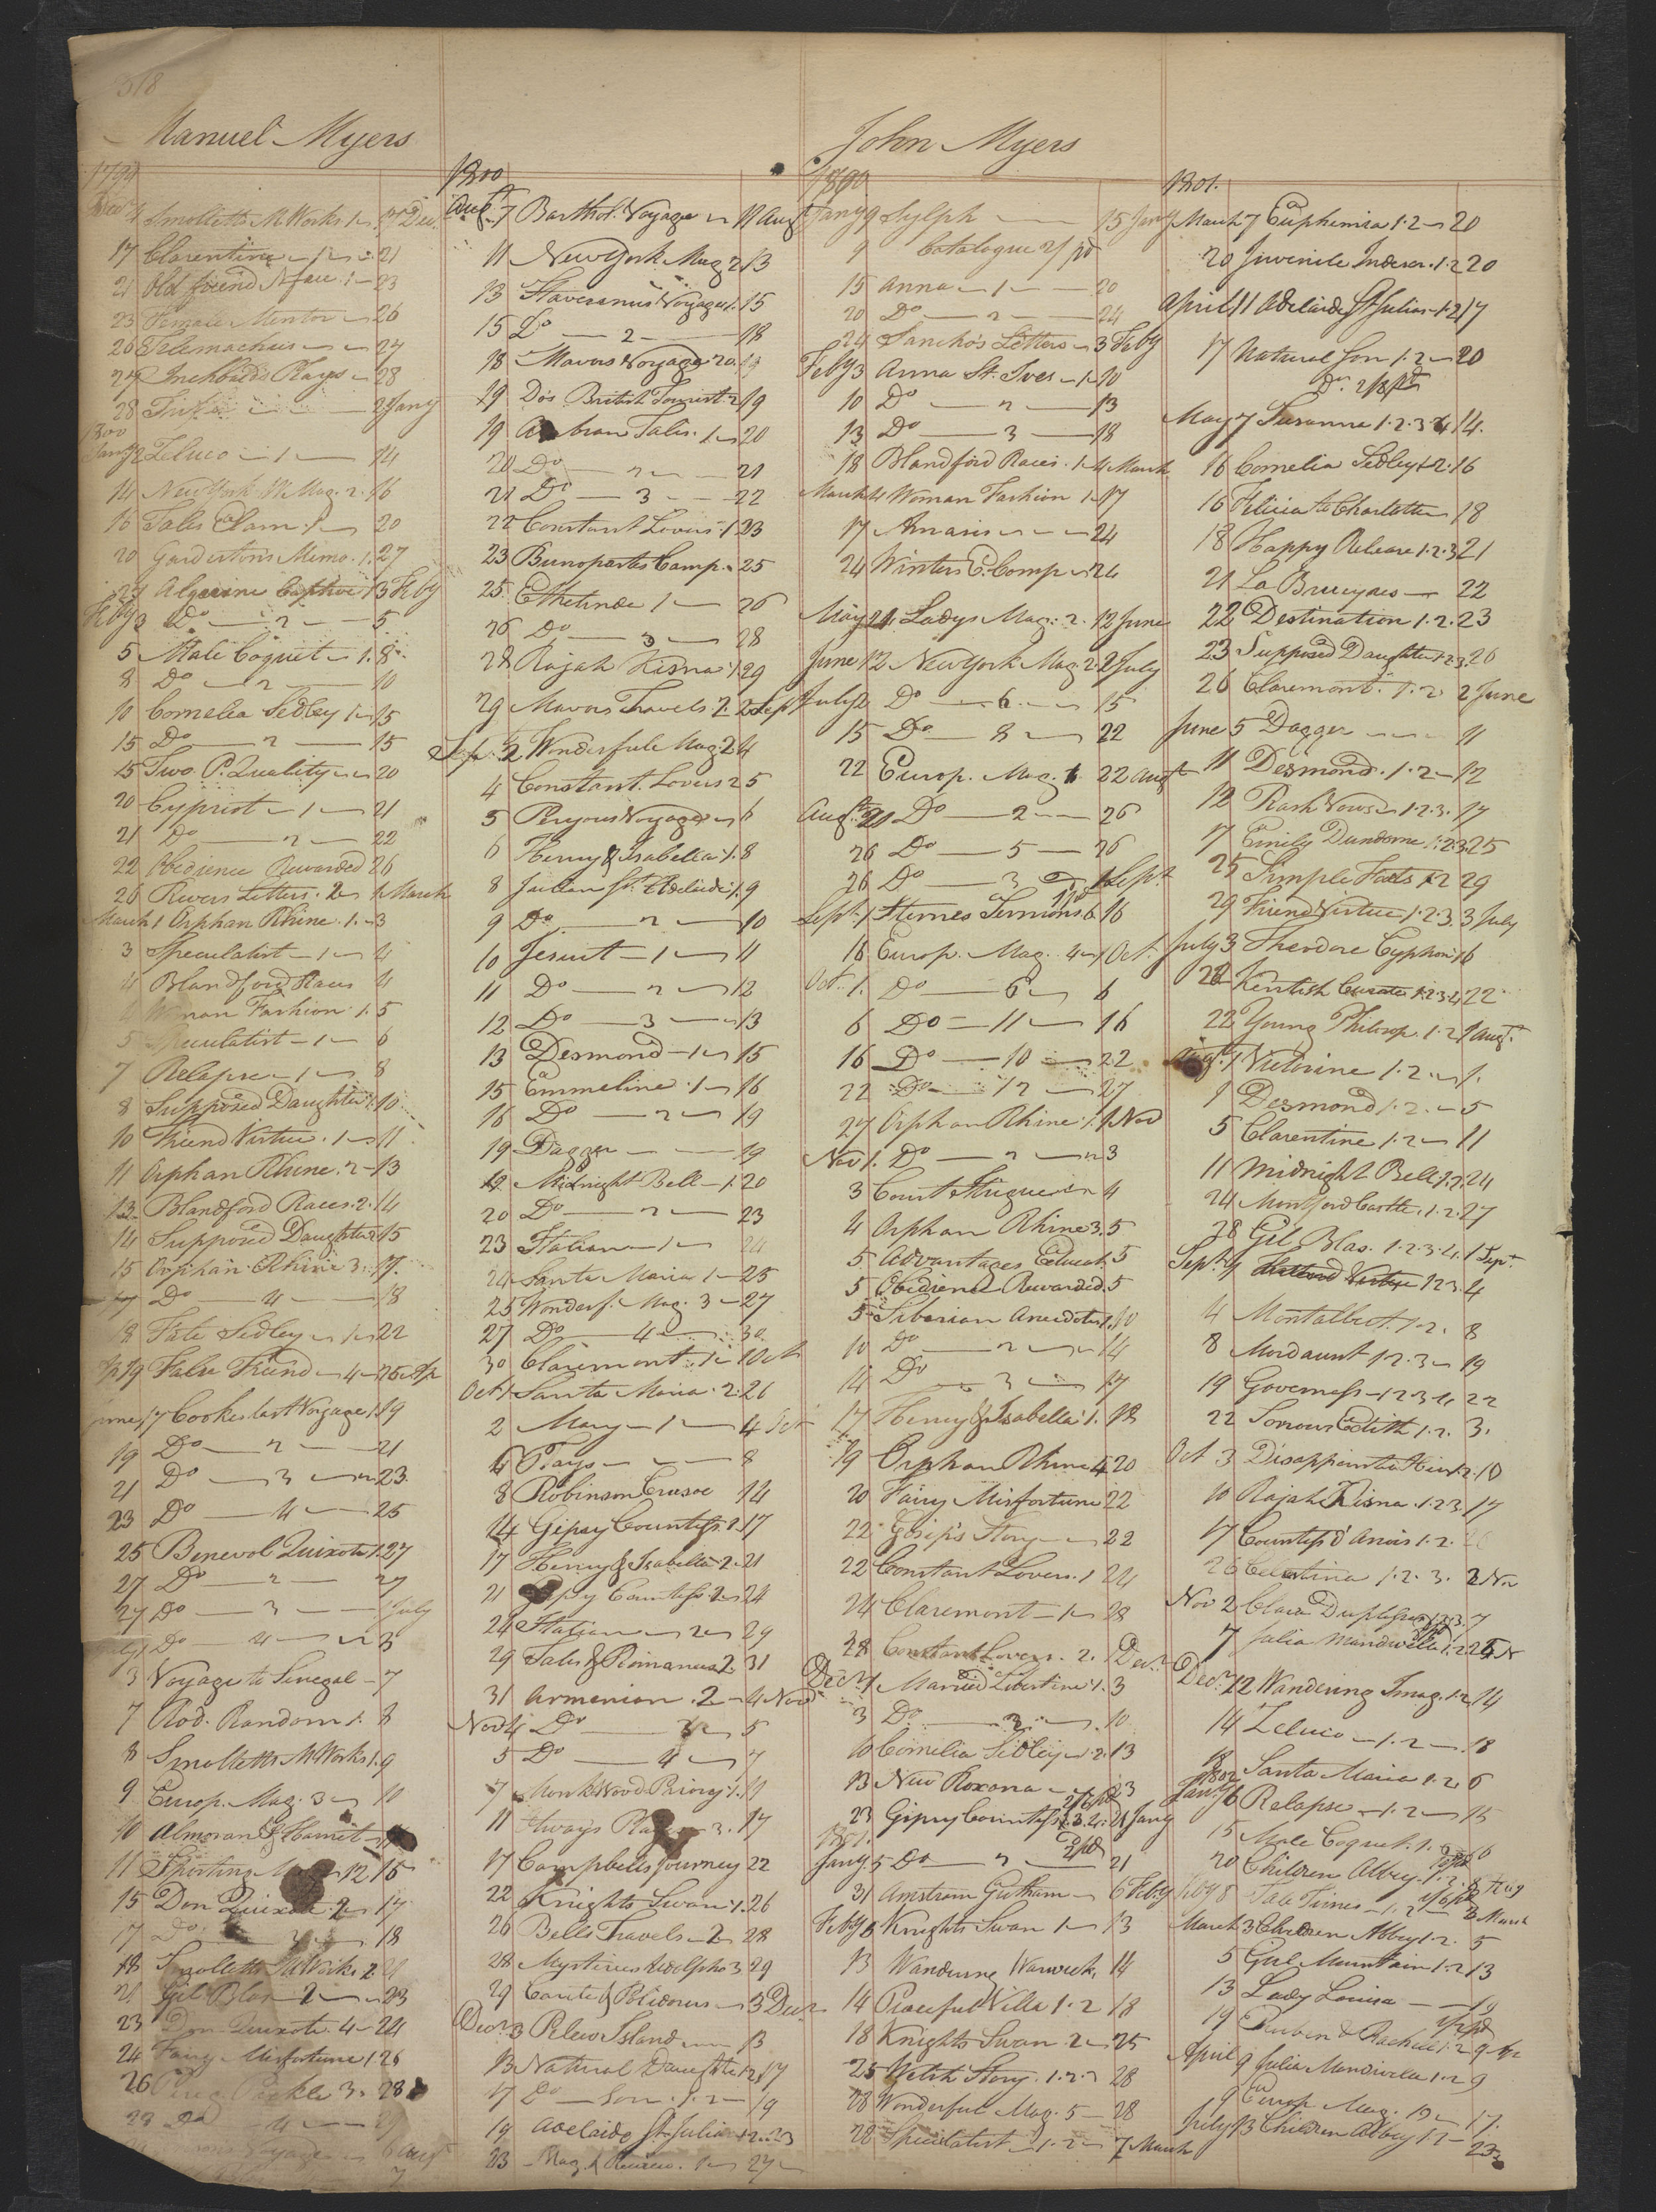 318
Manuel Myers
1799
Decr 4 Smolletts M. Works 1 17 Dec.
17 Clarentine 1 21
21 Old friend N face 1 23
23 Female Mentor 26
26 Telemachus 27
27 Inchbalds Plays 28
28 2 Jany
1800
Jany 2 Zeluco 1 14
14 New York W. Mag. 2 16
16 Tales Elam 1 20
20 Mems. 1 27
27 Algerine Captive 1 3 Feby
Feby 3 Do 2 5
5 Male Coquet 1 8
8 Do 2 10
10 Cornelia Sedley 1 15
15 Do 2 15
15 Two P. Quality 20
20 Cypriot 1 21
21 Do 2 22
22 Obedience Rewarded 26
26 Rivers Letters 2 1 March
March 1 Orphan Rhine 1 3
3 Speculatist 1 4
4 Blandford Races 4
4 Woman Fashion 1 5
5 Speculatist 1 6
7 Relapse 1 8
8 Supposed Daughter 1 10
10 Friend Virtue 1 11
11 Orphan Rhine 2 13
13 Blandford Races 2 14
14 Supposed Daughter 2 15
15 Orphan Rhine 3 17
17 Do 4 18
18 Fate Sedley 1 22
Ap 19 False Friend 4 25 Ap
June 17 Cookes last Voyage 1 19
19 Do 2 21
21 Do 3 23
23 Do 4 25
25 Benevol Quixote 1 27
27 Do 2 27
27 Do 3 1 July
July 1 Do 4 3
3 Voyage to Senegal 7
7 Rod. Random 1 8
8 Smolletts M Works 1 9
9 Europ. Mag. 3 10
10 Almoran & Hamet
11 Sporting M 12 15
15 Don Quixote 2 17
17 Do 3 18
18 Smolletts M Works 2 21
21 Gil Blas 2 23
23 Don Quixote 4 24
24 Fairy Misfortune 1 26
26 Pereg Pickle 3 28
28 Do 4 29
1800
Augt 7 Barthol. Voyage 11 Augt
11 New York Mag 2 13
13 Staverinus Voyages 1 15
15 Do 2 18
18 Mavors Voyage 20 19
19 Do's British Tourist 2 19
19 Arabian Tales 1 20
20 Do 2 21
21 Do 3 22
22 Constant Lovers 1 23
23 Buonopartes Camp. 25
25 Ethelinde 1 26
26 Do 3 28
28 Rajah Kisna 1 29
29 Mavors Travels 2 2 Sept
Sept. 2 Wonderfule Mag 2 4
4 Constant Lovers 2 5
5 Peryous Voyage 6
6 Henry & Isabella 1 8
8 Julian St. Adelaide 1 9
9 Do 2 10
10 Jesuit 1 11
11 Do 2 12
12 Do 3 13
13 Desmond 1 15
15 Emmeline 1 16
16 Do 2 19
19 Dagger 19
19 Midnight Bell 1 20
20 Do 2 23
23 Italian 1 24
24 Santa Maria 1 25
25 Wonderf. Mag. 3 27
27 Do 4 30
30 Claremont 1 1 Oct
Oct 1 Santa Maria 2 26
2 Mary 1 4 Oct
4 Plays 8
8 Robinson Crusoe 14
14 Gipsy Countess 1 17
17 Henry & Isabella 2 21
21 Gipsy Countess 2 24
24 Italian 2 29
29 Tales & Romances 2 31
31 Armenian 2 4 Nov
Nov 4 Do 3 5
5 Do 4 7
7 Monkwood Priory 1 11
11 Otways 3. 17
17 Campbells Journey 22
22 Knights Swan 1 26
26 Bells Travels 2 28
28 Mysteries Udolpho 3 29
29 Carite & Polidorus 3 Decr
Decr 3 Pelew Island 13
13 Natural Daughter 1 2 17
17 Do Son 1 2 19
19 Adelaide St Julian 1 2 23
23 Mag. & Review 1 27
John Myers
1800
Jany 9 Sylph 15 Jany
9 Catalogue 2/ pd
15 Anna 1 20
20 Do 2 24
24 Sancho's Letters 3 Feby
Feby 3 Anna St. Ives 1 10
10 Do 2 13
13 Do 3 18
18 Blandford Races 1 4 March
March 4 Woman Fashion 1 17
17 Amasis 24
24 Winters E. Comp 24
May 21 Ladys Mag. 2. 12 June
June 12 New York Mag. 2 2 July
July 2 Do 6 15
15 Do 8 22
22 Europ. Mag. 1 22 Augt
Augt 21 Do 2 26
26 Do 5 26
26 Do 3 1 Sept
Sept. 1 Sternes Sermons 6 16
16 Europ. Mag. 4 1 Oct.
Oct. 1. Do 6 6
6 Do 11 16
16 Do 10 22
22 Do 12 27
27 Orphan Rhine 1 1 Nov
Nov 1. Do 2 3
3 Count 4
4 Orphan Rhine 3 5
5 Advantages Educat. 5
5 Obedience Rewarded 5
5 Siberian Anecdotes 1 10
10 Do 2 14
14 Do 3 17
17 Henry & Isabella 1. 19
19 Orphan Rhine 4 20
20 Fairy Misfortune 22
22 Gosips Story 22
22 Constant Lovers 1 24
24 Claremont 1 28
28 Constant Lovers. 2. 1 Decr
Decr 1 Married Libertine 1. 3
3 Do 2 10
10 Cornelia Sedley 1 2. 13
13 New Roxana 23
2/6 pd
23 Gipsy Countess 1 2 3 4 21 Jany
1801. 2/ pd
Jany 5 Do 2 21
31 Amstrom Gotham 6 Feby
Feby 6 Knights Swan 1 13
13 Wandring Warwick 14
14 Peaceful Villa 1. 2 18
18 Knights Swan 2 25
25 Welch Story 1. 2. 3 28
28 Wonderful Mag. 5 28
28 Speculatist 1. 2 7 March
1801.
March 7 Euphemia 1. 2 20
20 Juvenile Indiscr. 1. 2 20
April 11 Adelaide St Julian 1 2 17
17 Natural Son 1. 2 20
Do. 2/8 pd
May 7 Susanna 1. 2. 3. 4 14.
16 Cornelia Sedley 1 2. 16
16 Felicia to Charlotte 18
18 Happy Release 1. 2. 3 21
21 La Bruyeres 22
22 Destination 1. 2. 23
23 Supposed Daughter 1 2 3. 26
26 Claremont 1. 2 2 June
June 5 Dagger 11
11 Desmond. 1. 2 12
12 Rash Vows 1. 2. 3. 17
17 Emily Dundorne 1. 2. 3. 25
25 Simple Facts 1 2 29
29 Friend Virtue 1. 2. 3. 3 July
July 3 Theodore Cyphon 16
22 Kentish Curate 1. 2. 3. 4 22
22 Young Philosop. 1. 2 1 Augt.
Augt. 1 Victorine 1. 2. 1.
1 Desmond 1. 2. 5
5 Clarentine 1. 2 11
11 Midnight Bell 1. 2. 24
24 Montford Castle. 1. 2. 27
28 Gil Blas. 1. 2. 3. 4. 1 Sept.
Sept. 1 Virtue 1 2 3. 4
4 Montalbert. 1. 2. 8
8 Mordaunt 1. 2. 3 19
19 Governess 1 2 3 4 22
22 Sorrows Edith 1. 2. 3.
Oct 3 Disappointed Heir 1. 2. 10
10 Rajah Kisna. 1. 2 3. 17
17 Countess d' Anois 1. 2. 26
26 Celestina 1. 2. 3. 2 Nov
Nov 2 Clara Duplessis 1. 2. 3. 7
7 Julia Mandeville 1. 2
Decr 12 Wandering Imag. 1. 2 14
14 Zeluco 1. 2 18
18 Santa Maria 1. 2. 6
1802
Jany 6 Relapse 1. 2 15
15 Male Coquet. 1. 2
20 Children Abbey. 1. 2. 8 Feby
Feby 8 Tale Times 1. 2 3 March
March 3 Children Abbey 1. 2. 5
5 Girl Mountain 1. 2 13
13 Lady Louisa
19 Reuben & Rachel 1. 2 9 Ap
April 9 Julia Mandivilla 1. 2 9
9 Europ. Mag. 10 17.
July 13 Children Abbey 1. 2 23